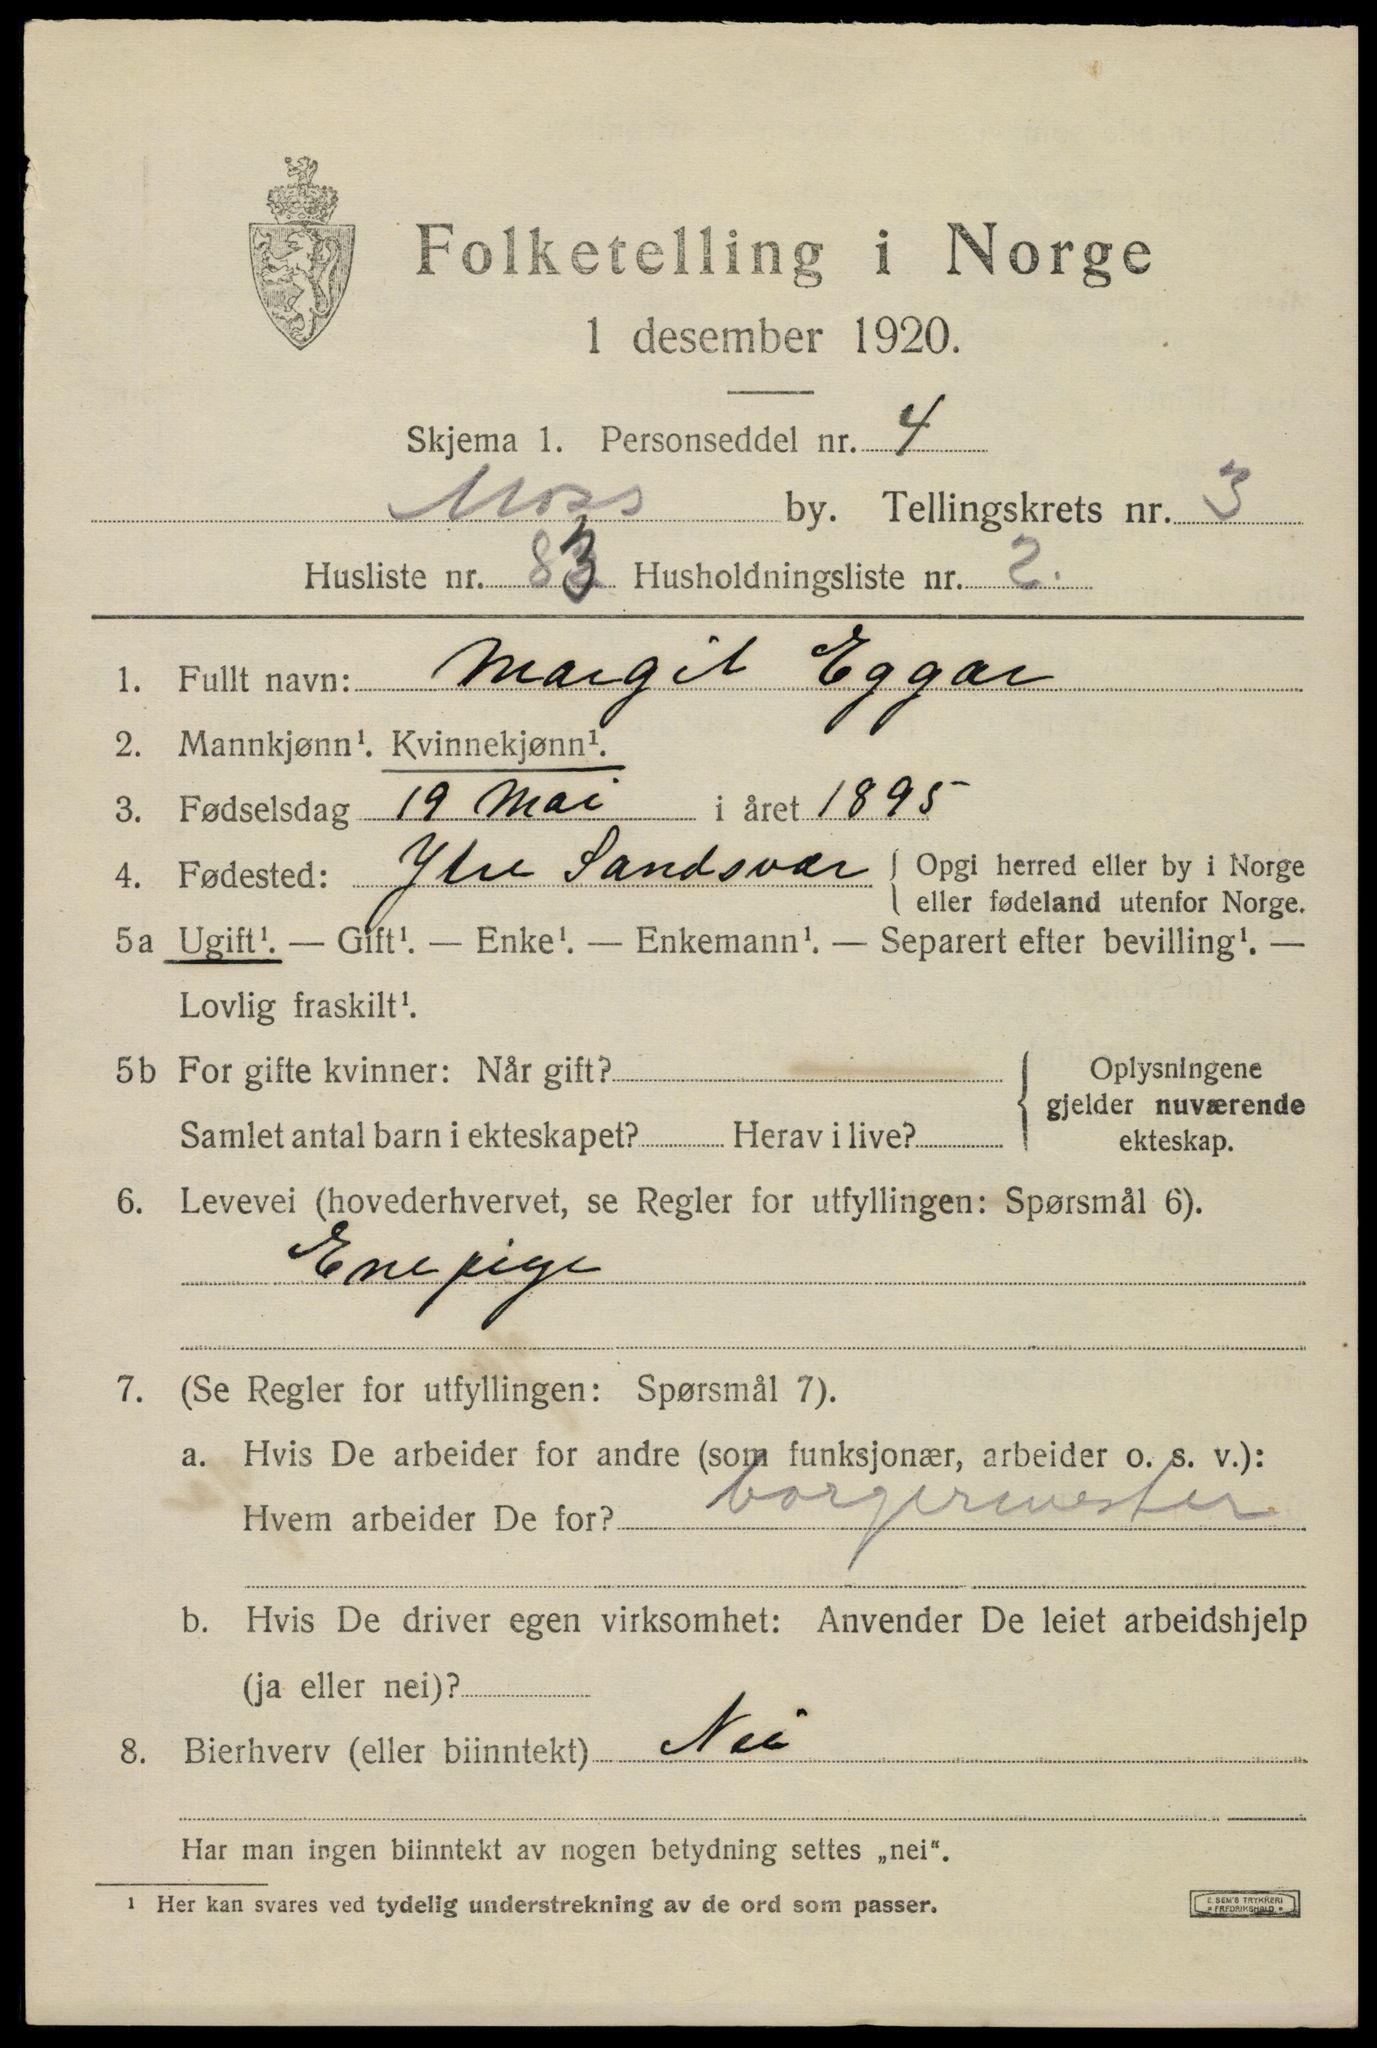 Folketelling i Norge
1 desember 1920.
Skjema 1. Personseddel nr. 4
Moss by. Tellingskrets nr. 3
Husliste nr. 83 Husholdningsliste nr. 2.
1. Fullt navn: Margit Eggar
2. Mannkjønn¹. Kvinnekjønn¹.
3. Fødselsdag 19 Mai i året 1895
4. Fødested: Ytre Sandsvær { Opgi herred eller by i Norge
eller fødeland utenfor Norge.
5a Ugift¹. — Gift¹. — Enke¹. — Enkemann¹. — Separert efter bevilling¹. —
Lovlig fraskilt¹.
5b For gifte kvinner: Når gift? { Oplysningene
gjelder nuværende
Samlet antal barn i ekteskapet? Herav i live? ekteskap.
6. Levevei (hovederhvervet, se Regler for utfyllingen: Spørsmål 6).
Enepige
7. (Se Regler for utfyllingen: Spørsmål 7).
a. Hvis De arbeider for andre (som funksjonær, arbeider o. s. v.):
Hvem arbeider De for? borgermester
b. Hvis De driver egen virksomhet: Anvender De leiet arbeidshjelp
(ja eller nei)?
8. Bierhverv (eller biinntekt) Nei
Har man ingen biinntekt av nogen betydning settes „nei“.
¹ Her kan svares ved tydelig understrekning av de ord som passer.
E. SEM'S TRYKKERI
* FREDRIKSHALD *